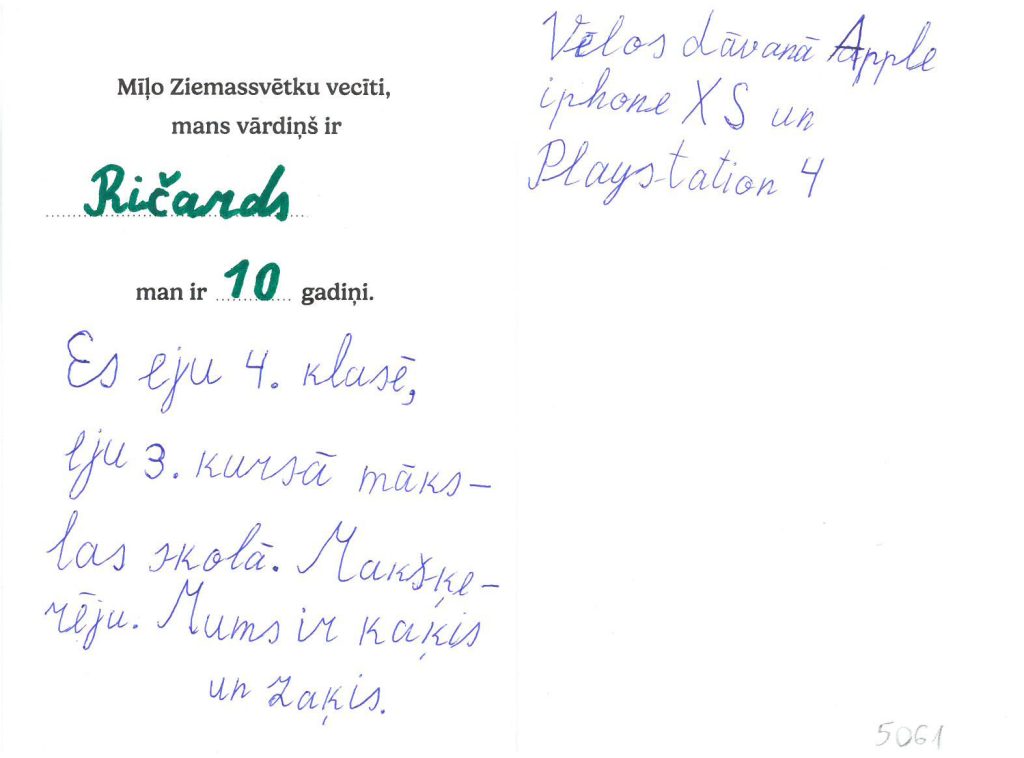 Mīļo Ziemassvētku vecīti,
mans vārdiņš ir
Ričards
man ir 10 gadiņi.
Es eju 4. klasē,
eju 3. kursā māks-
las skolā. Makšķe-
rēju. Mums ir kaķis
un zaķis.
Vēlos dāvanā Apple
iphone XS un
Playstation 4
5061